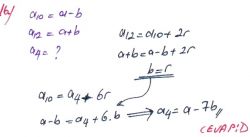 16)
a₁₀ = a-b
a₁₂ = a+b
a₄ = ?
a₁₂ = a₁₀ + 2r
a+b = a-b + 2r
b = r
a₁₀ = a₄ + 6r
a-b = a₄ + 6.b ⟹ a₄ = a - 7b //
(CEVAP: D